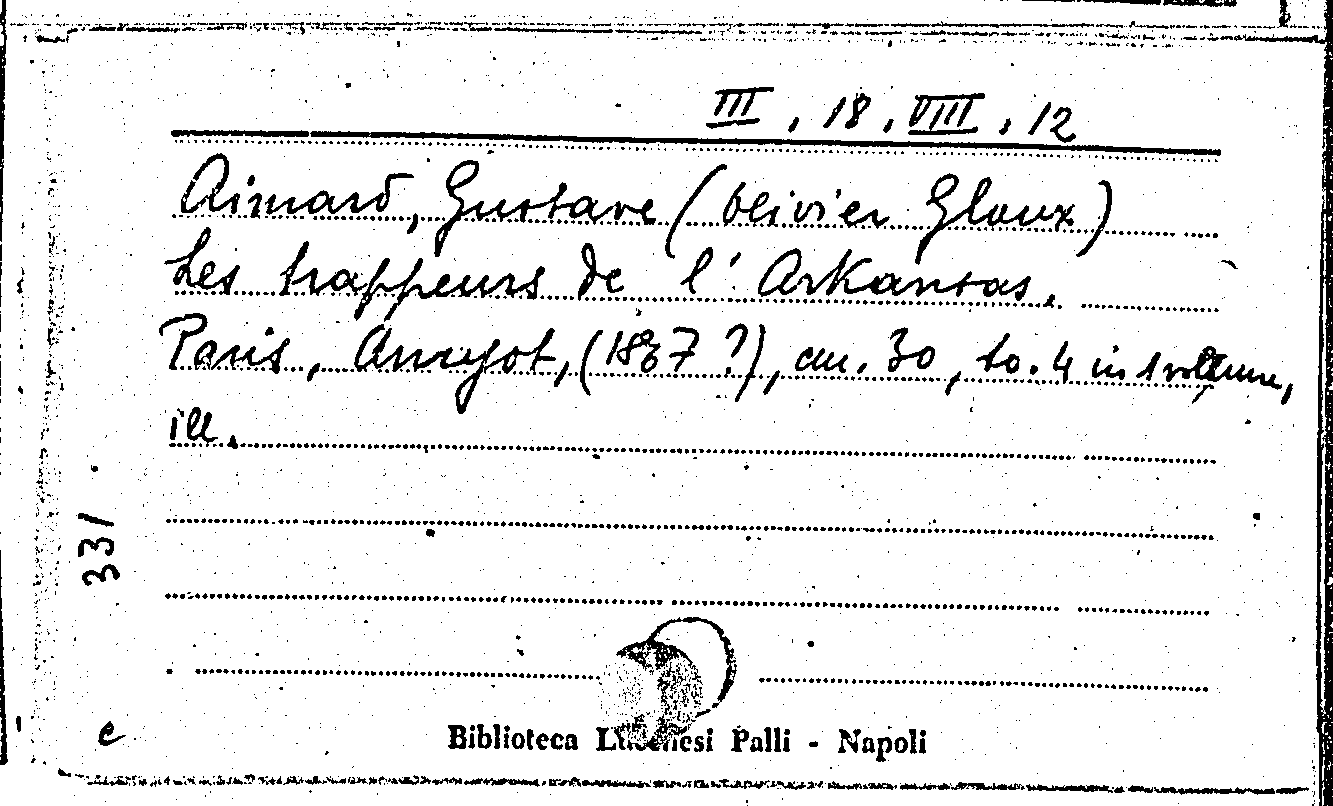 III, 18, VIII, 12
Aimard, Gustave (Olivier Gloux)
Les trappeurs de l'Arkansas.
Paris, Amyot, (1867?), cm. 30, to. 4 in 1 volume,
ill.
331
e
Biblioteca Lucchesi Palli - Napoli